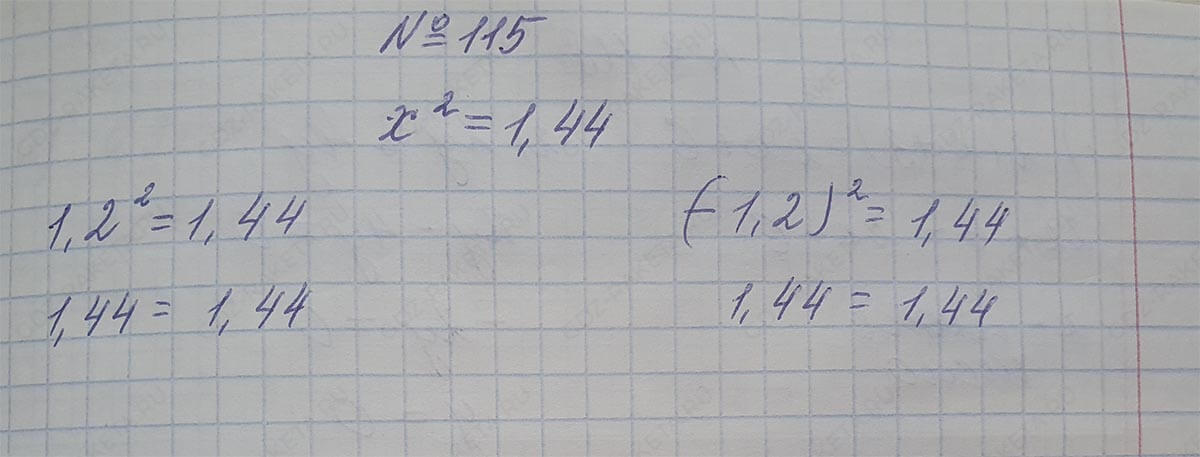 № 115
x² = 1,44
1,2² = 1,44 (-1,2)² = 1,44
1,44 = 1,44 1,44 = 1,44